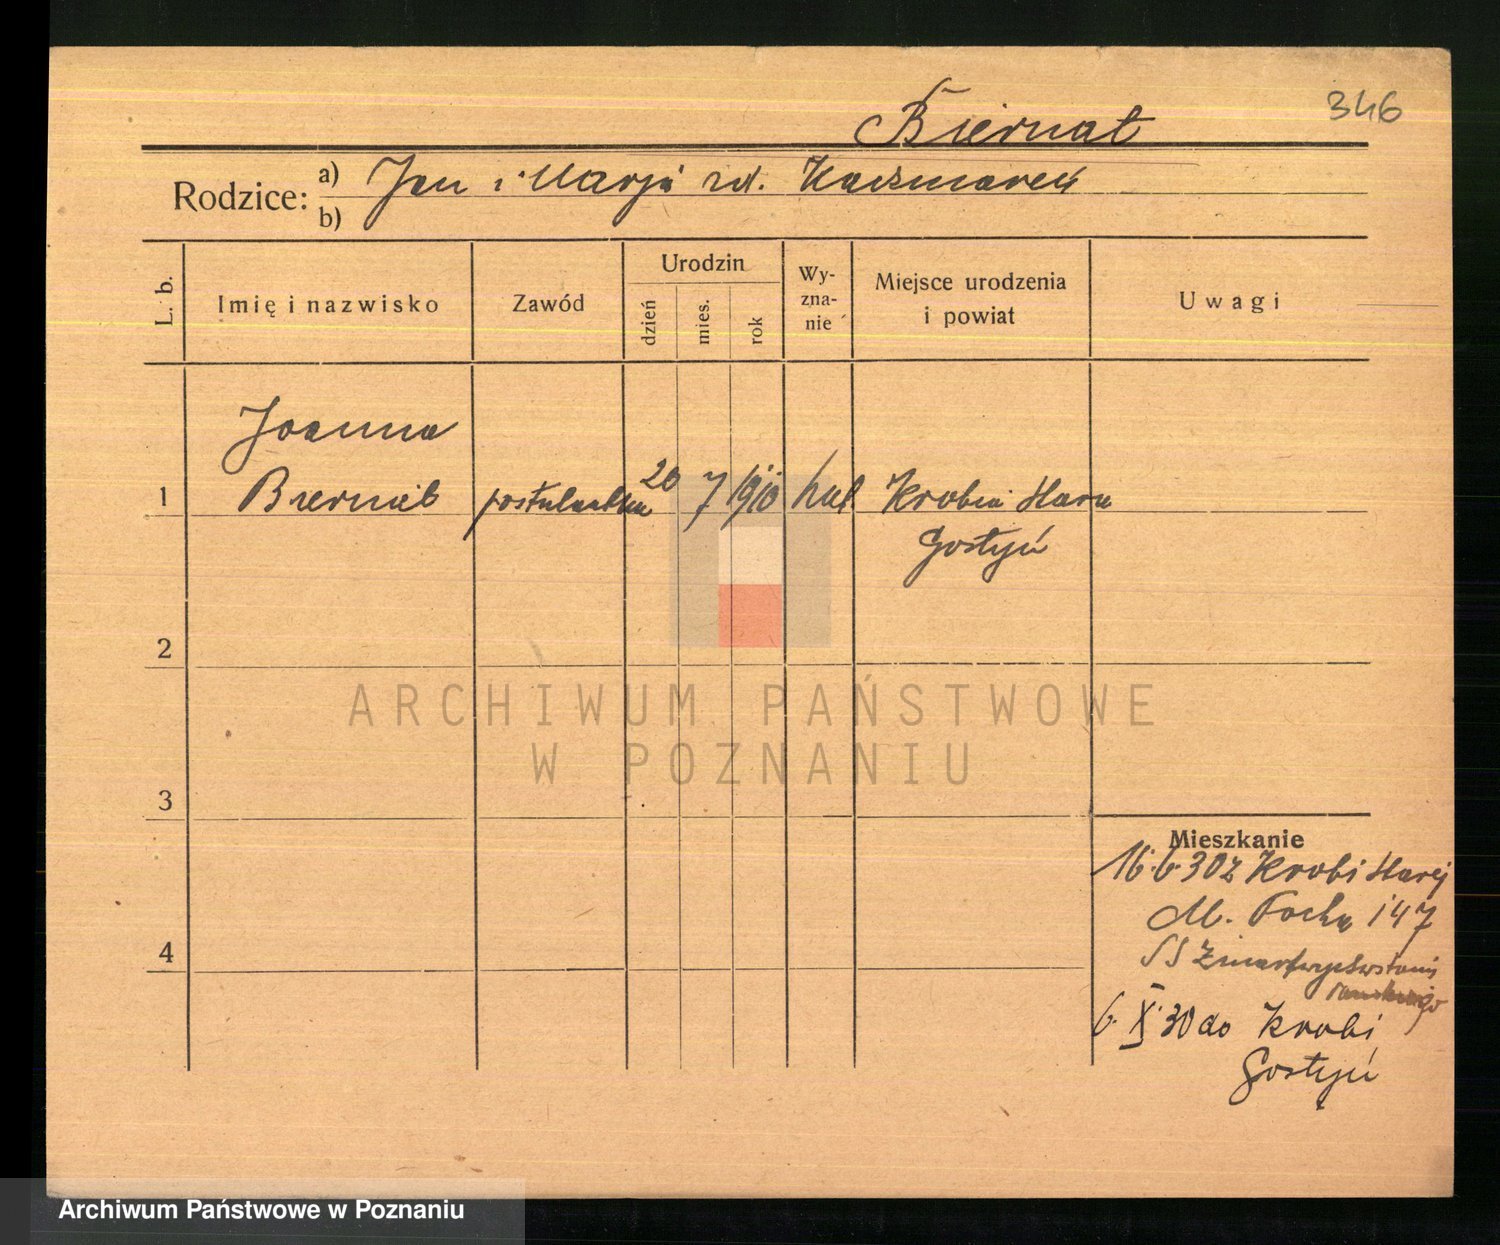 Biernat
346
Rodzice: a) Jan i Marja zd. Kaczmarek
b)
L. b.
Imię i nazwisko
Zawód
Urodzin
dzień
mies.
rok
Wy-
zna-
nie
Miejsce urodzenia
i powiat
Uwagi
Joanna
1 Biernat postulantka 20 7 1910 kat Krobia Stara
Gostyń
2
ARCHIWUM PAŃSTWOWE
W POZNANIU
3
Mieszkanie
16.6.30 z Krobi Starej
M. Focha 147
SS Zmartwychwstania
Pańskiego
4
6. X. 30 do Krobi
Gostyń
Archiwum Państwowe w Poznaniu